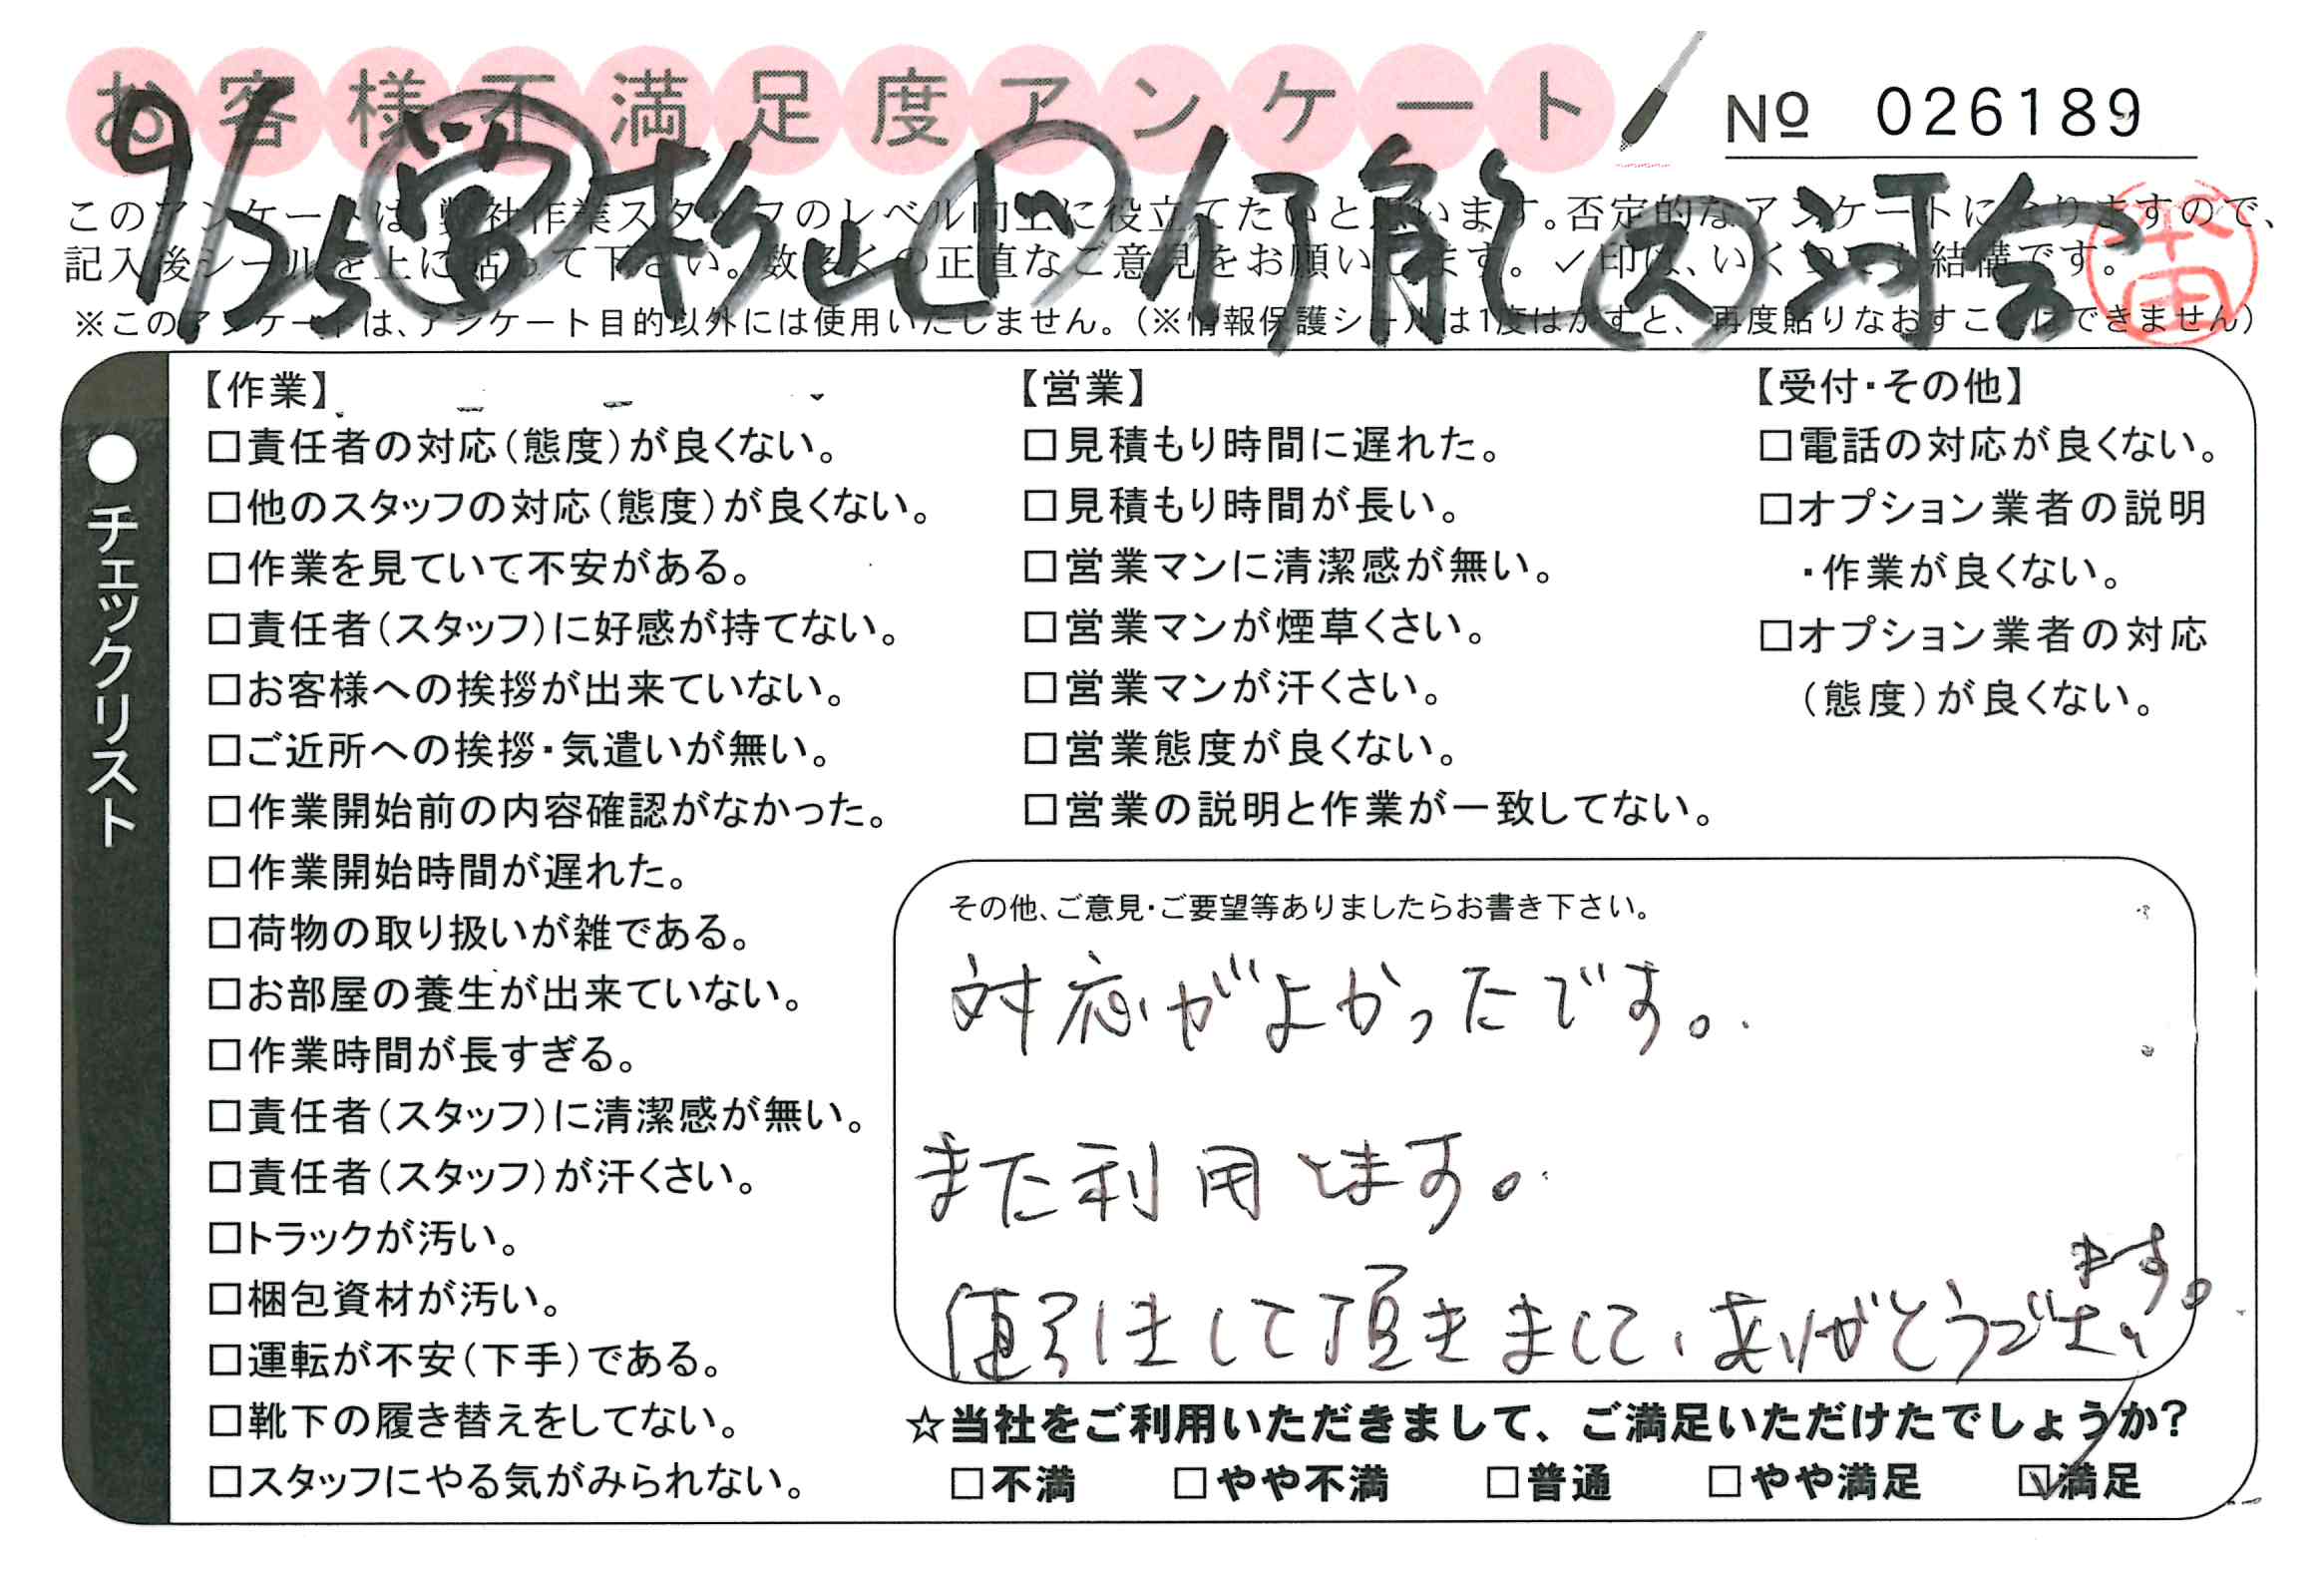 お客様不満足度アンケート
№ 026189
9/25 営 杉山 リ 河会
このアンケートは、弊社作業スタッフのレベル向上に役立てたいと思います。否定的なアンケートになりますので、
記入後シールを上に貼って下さい。数多くの正直なご意見をお願いします。✓印は、いくつでも結構です。
※このアンケートは、アンケート目的以外には使用いたしません。(※情報保護シールは1度はがすと、再度貼りなおすことはできません)
●チェックリスト
【作業】
□責任者の対応(態度)が良くない。
□他のスタッフの対応(態度)が良くない。
□作業を見ていて不安がある。
□責任者(スタッフ)に好感が持てない。
□お客様への挨拶が出来ていない。
□ご近所への挨拶・気遣いが無い。
□作業開始前の内容確認がなかった。
□作業開始時間が遅れた。
□荷物の取り扱いが雑である。
□お部屋の養生が出来ていない。
□作業時間が長すぎる。
□責任者(スタッフ)に清潔感が無い。
□責任者(スタッフ)が汗くさい。
□トラックが汚い。
□梱包資材が汚い。
□運転が不安(下手)である。
□靴下の履き替えをしてない。
□スタッフにやる気がみられない。
【営業】
□見積もり時間に遅れた。
□見積もり時間が長い。
□営業マンに清潔感が無い。
□営業マンが煙草くさい。
□営業マンが汗くさい。
□営業態度が良くない。
□営業の説明と作業が一致してない。
【受付・その他】
□電話の対応が良くない。
□オプション業者の説明
・作業が良くない。
□オプション業者の対応
(態度)が良くない。
その他、ご意見・ご要望等ありましたらお書き下さい。
対応がよかったです。
また利用します。
値引きして頂きまして、ありがとうござい
ます。
☆当社をご利用いただきまして、ご満足いただけたでしょうか?
□不満 □やや不満 □普通 □やや満足 ☑満足